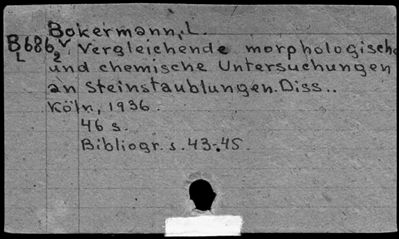 Bokermann, L.
B686v Vergleichende morphologische
L 2 und chemische Untersuchungen
an Steinstaublungen. Diss..
Köln, 1936.
46 s.
Bibliogr. s. 43-45.